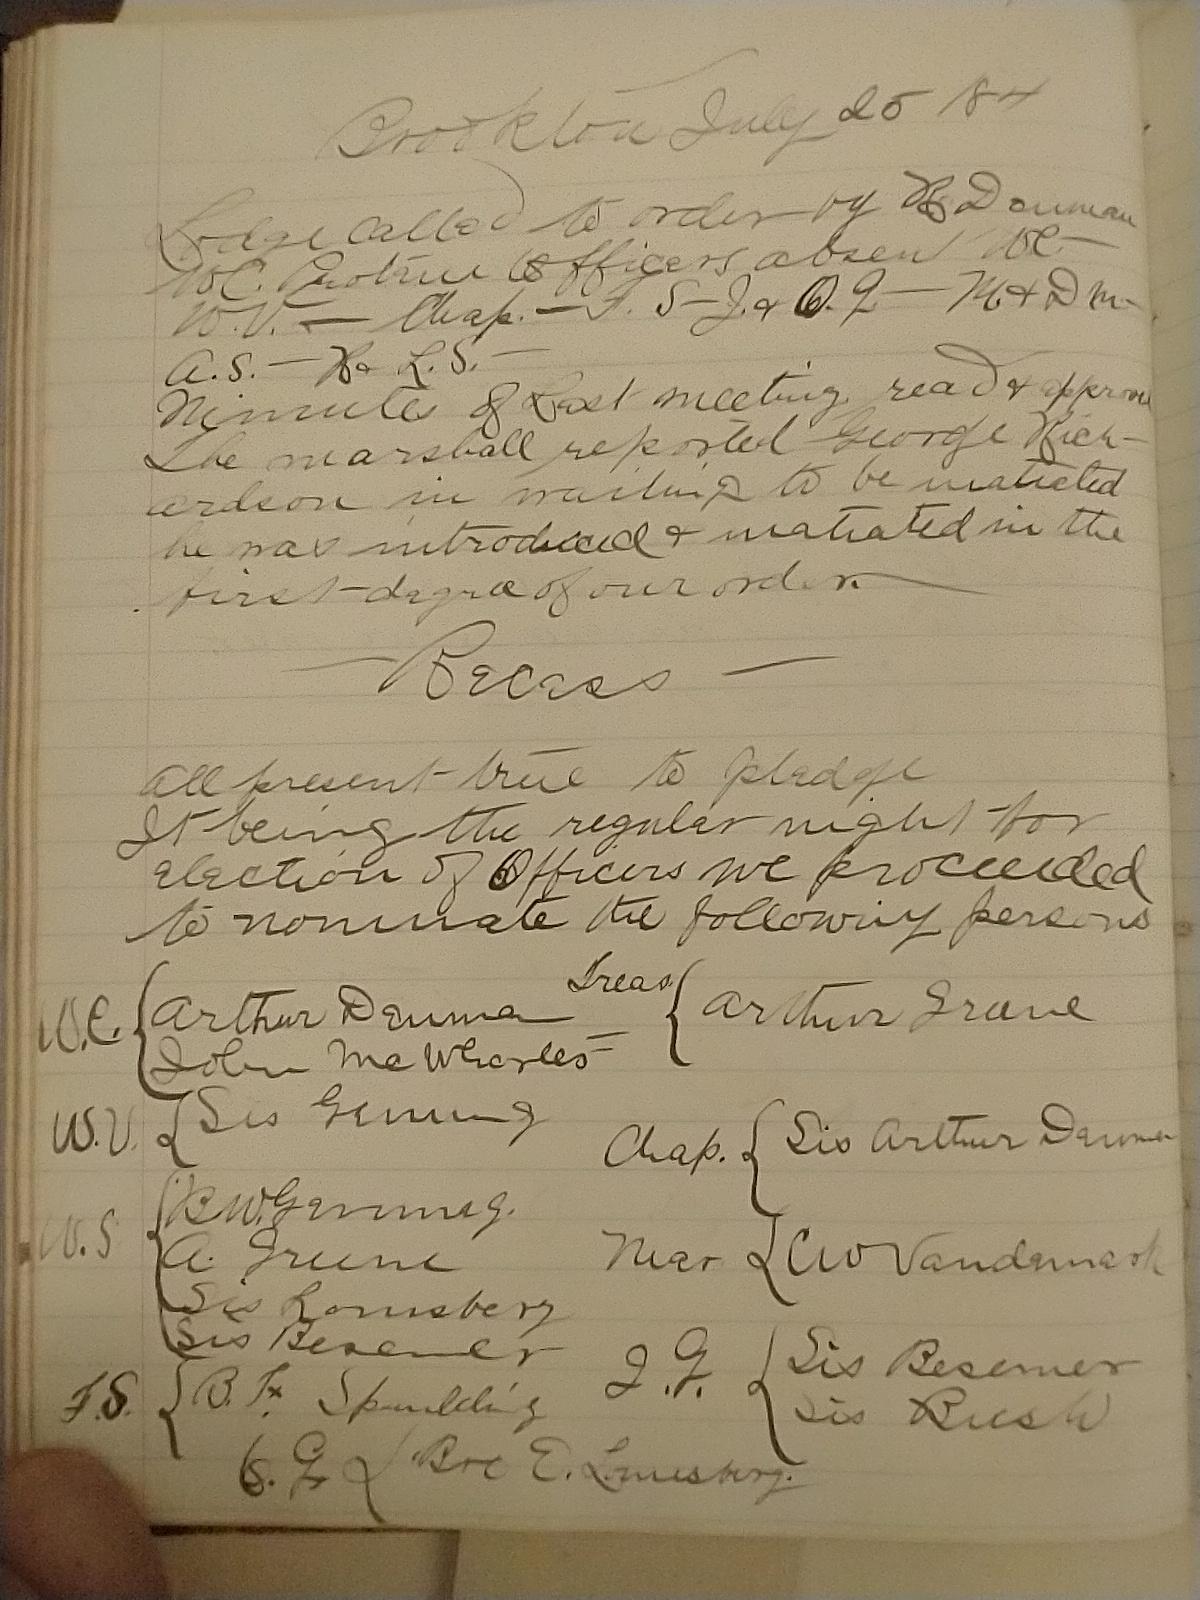 Brookton July 25 184
Lodge called to order by B Denman
W.C. Protem Officers absent W.C. —
W.V. — Chap. — F. S — I. & O. G — M & D M —
A.S. — R & L.S. —
Minutes of Last meeting read & approved
The marshall reported George Rich-
ardson in waiting to be inatiated
he was introduced & inatiated in the
first degree of our order.
— Recess —
All present true to pledge
It being the regular night for
election of Officers we proceeded
to nominate the following persons
W.C. { Arthur Denman Treas { Arthur Grane
John McWhorter
W.V. { Sis Genung
Chap. { Sis Arthur Denman
W.S { B.W. Genung.
A. Greene Mar { C W Vandemark
Sis Lounsbery
Sis Besemer I.G. { Sis Besemer
F.S. { B. F. Spaulding Sis Bush
O. G { Bro E. Lounsbery.